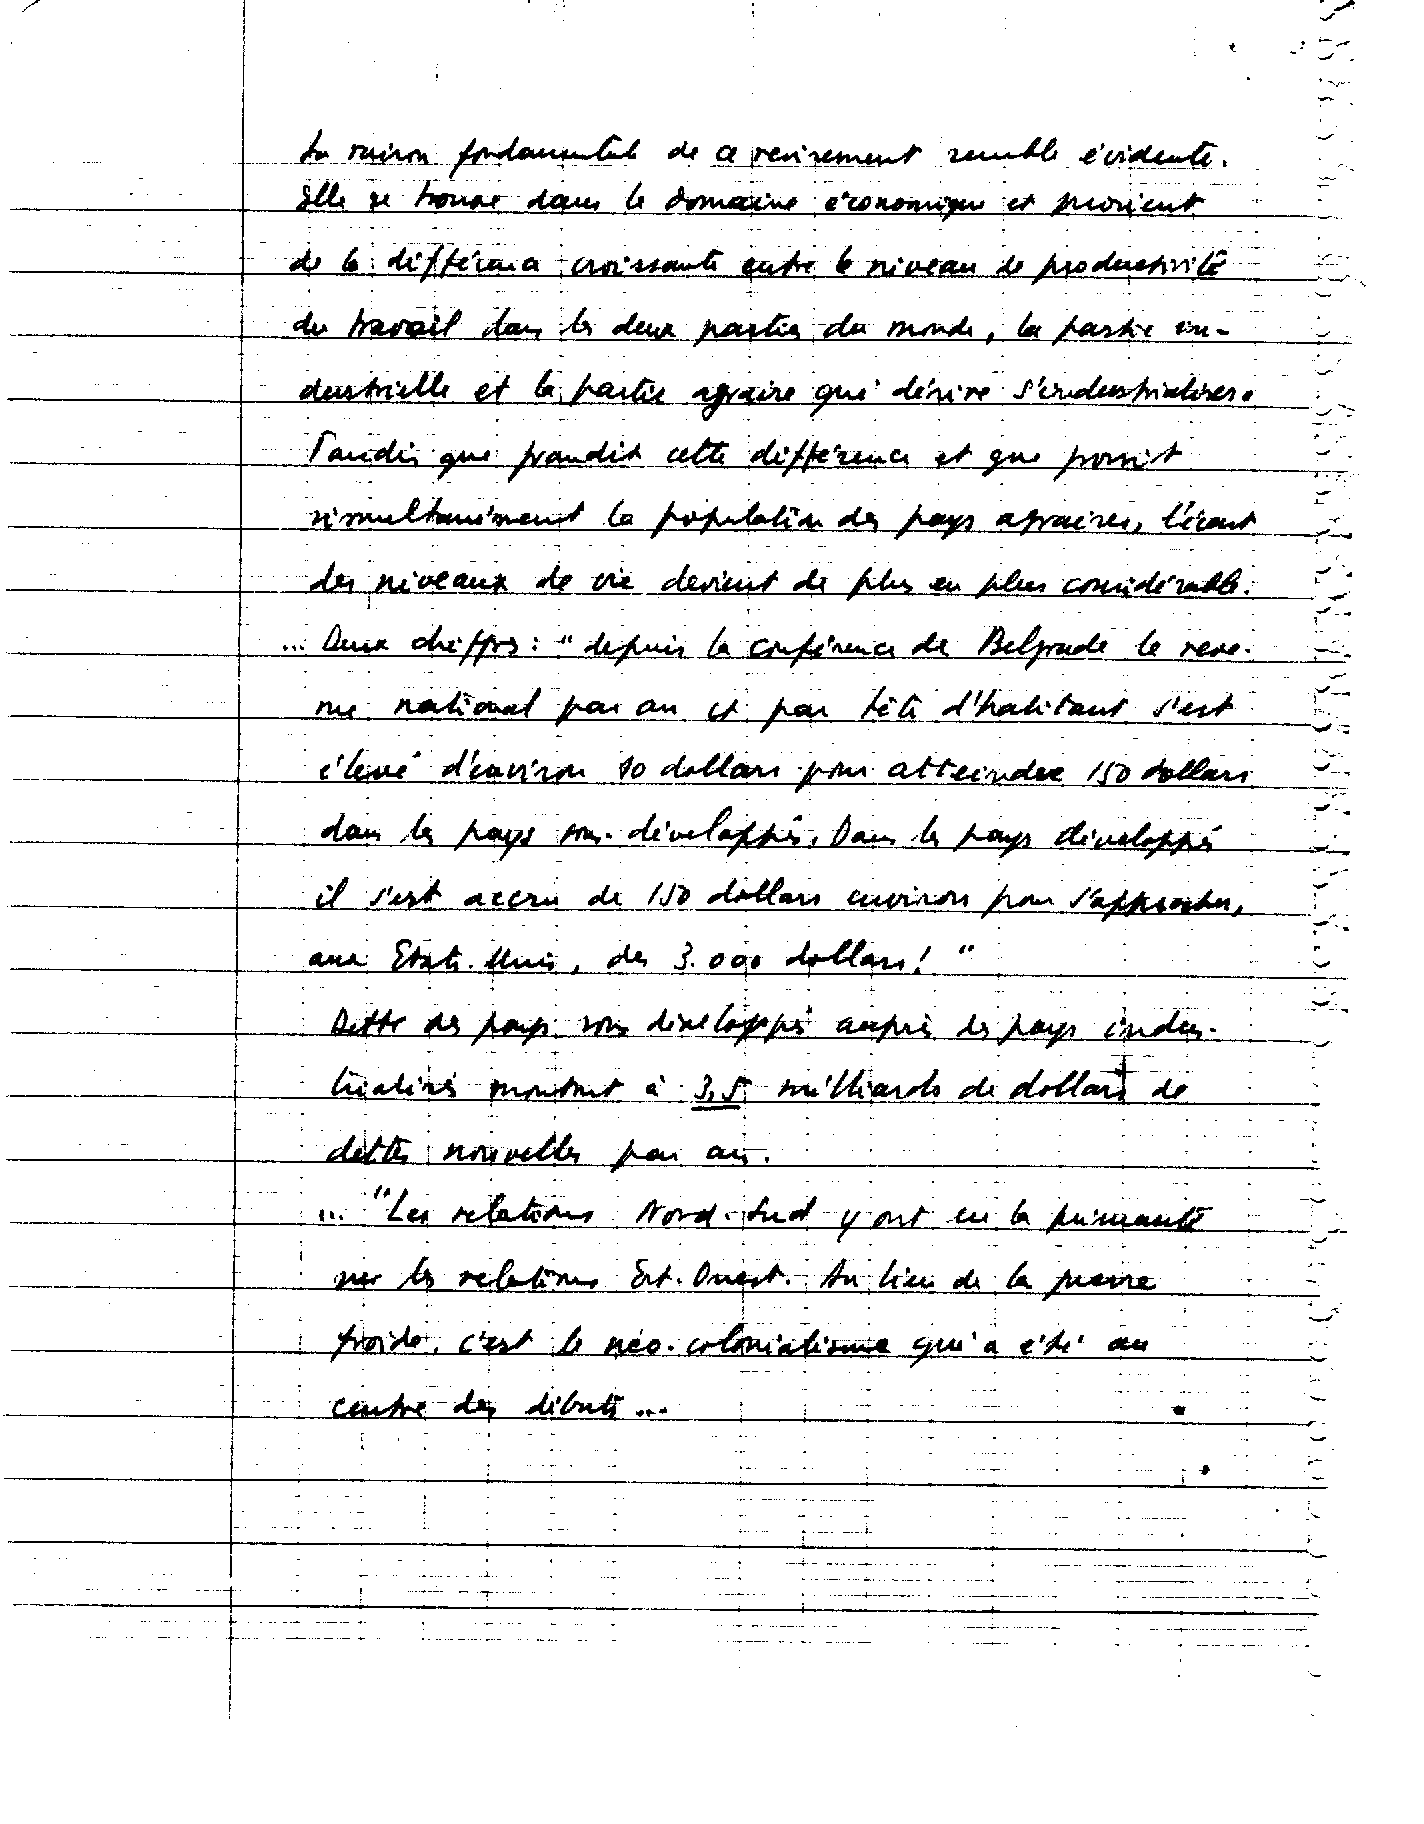 La raison fondamentale de ce revirement semble évidente.
Elle se trouve dans le domaine économique et provient
de la différence croissante entre le niveau de productivité
du travail dans les deux parties du monde, la partie in-
dustrielle et la partie agraire qui désire s'industrialiser.
Tandis que grandit cette différence et que grossit
simultanément la population des pays agraires, l'écart
des niveaux de vie devient de plus en plus considérable.
... Deux chiffres : "depuis la conférence de Belgrade le reve-
nu national par an et par tête d'habitant s'est
élevé d'environ 10 dollars pour atteindre 150 dollars
dans les pays sous-développés. Dans les pays développés
il s'est accru de 150 dollars environ pour s'approcher,
aux Etats-Unis, des 3.000 dollars ! "
Dette des pays sous développés auprès des pays indus-
trialisés montant à 3,5 milliards de dollars de
dettes nouvelles par an.
... "Les relations Nord-Sud y ont eu la primauté
sur les relations Est-Ouest. Au lieu de la guerre
froide, c'est le néo-colonialisme qui a été au
centre des débats ...